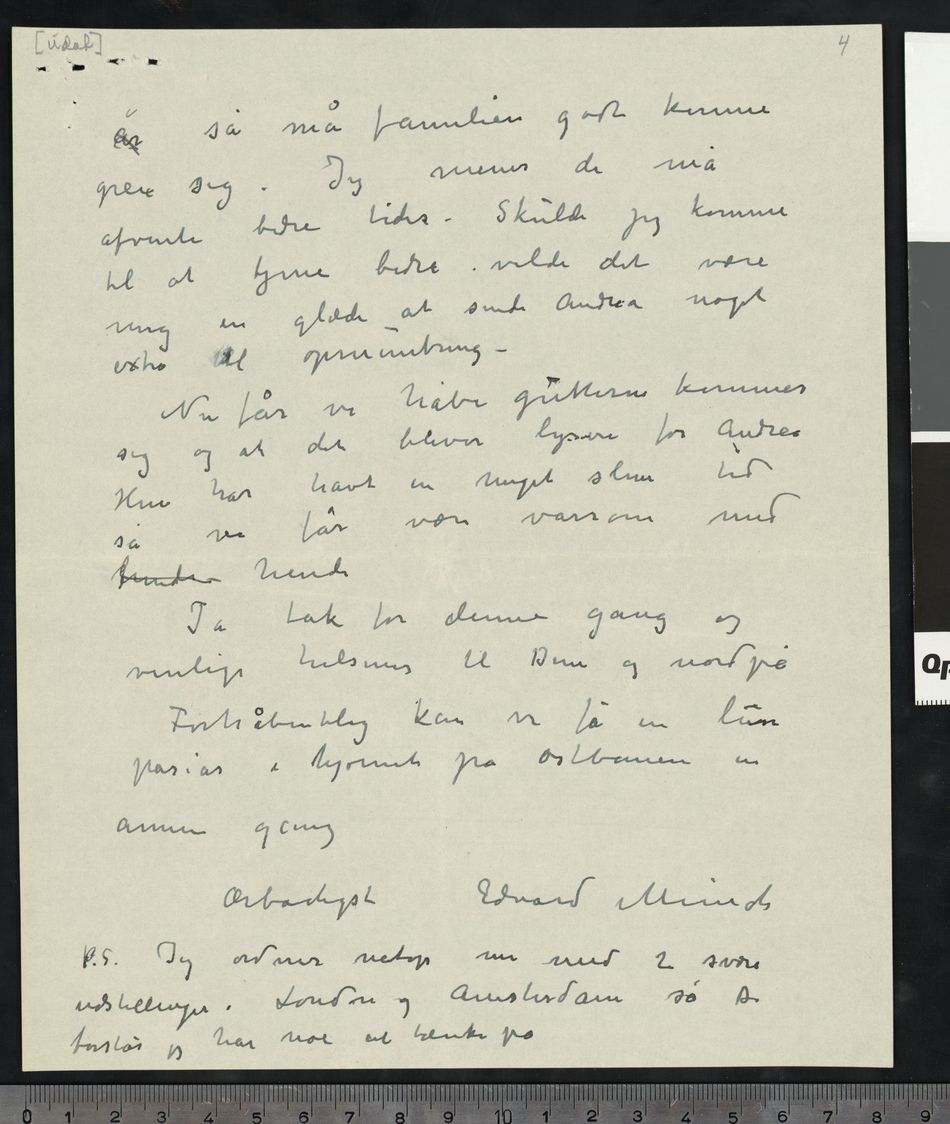 [udat]
4
år så må familien godt kunne
greie sig. Jeg mener de må
afvente bedre tider. Skulde jeg komme
til at tjene bedre vilde det være
mig en glæde at sende Andrea noget
extra til opmuntring –
Nu får vi håbe gutterne kommer
sig og at det bliver lysere for Andrea
Hun har havt en meget slem tid
så vi får være varsom med
hende
Ja tak for denne gang og
venlige hilsener til Dem og nordpå
Forhåbentlig kan vi få en lun
pasiar i hjørnet på Østbanen en
annen gang
Ærbødigst Edvard Munch
P.S. Jeg ordner netop nu med 2 svære
udstillinger. London og Amsterdam så De
forstår jeg har noe at tænke på
0 1 2 3 4 5 6 7 8 9 10 1 2 3 4 5 6 7 8 9
QP